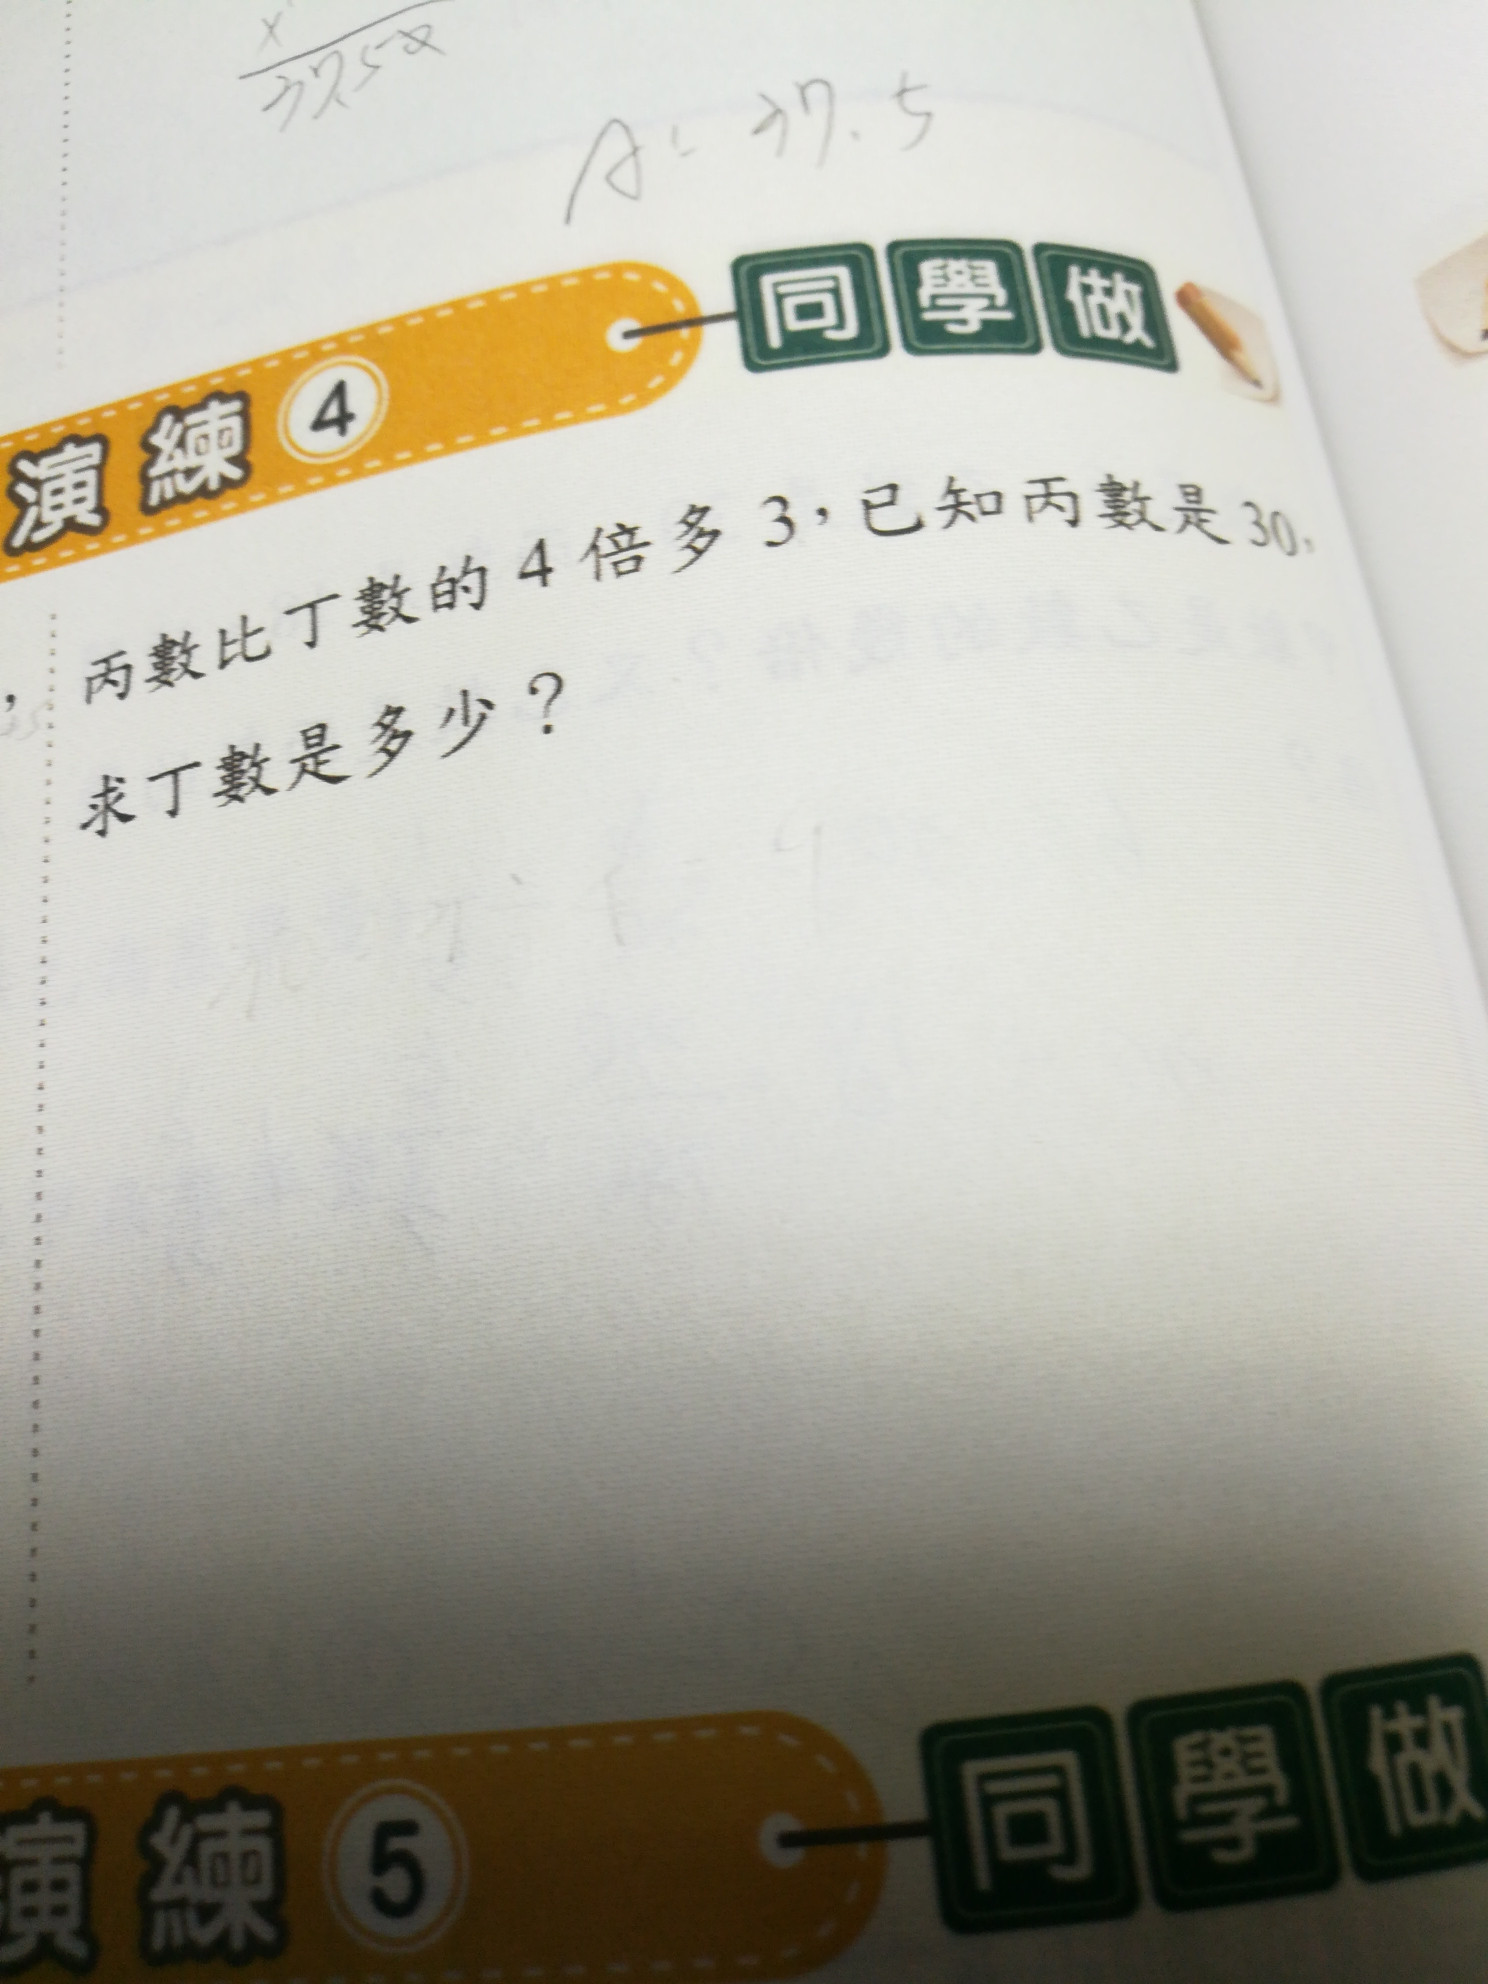 37.5
A: 37.5
演練4 同學做
丙數比丁數的4倍多3,已知丙數是30,
求丁數是多少?
演練5 同學做